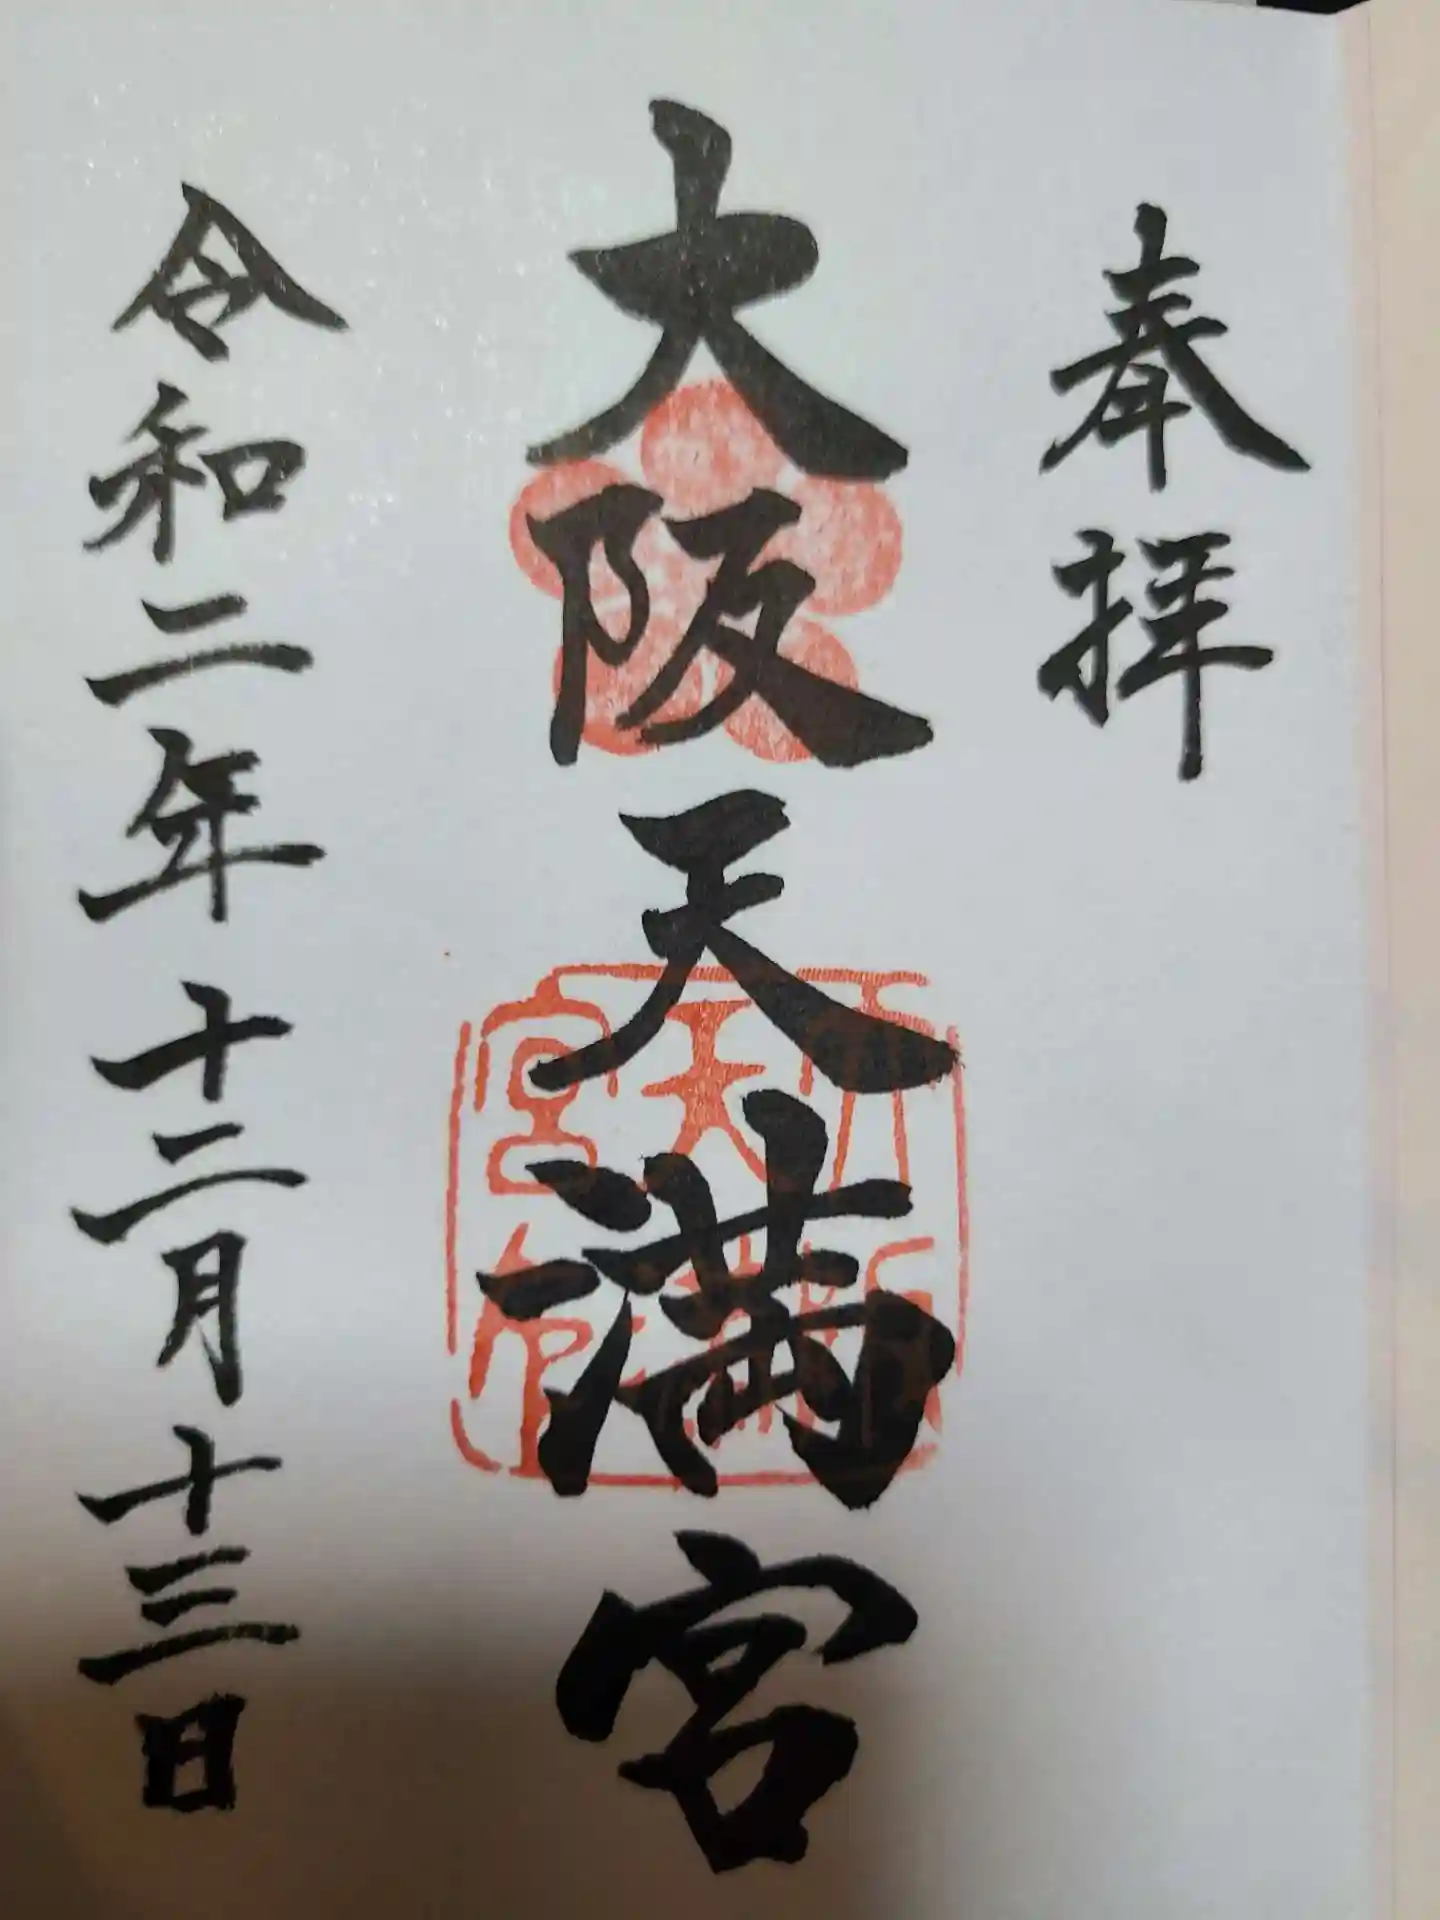 奉拝
大阪天満宮
令和二年十二月十三日